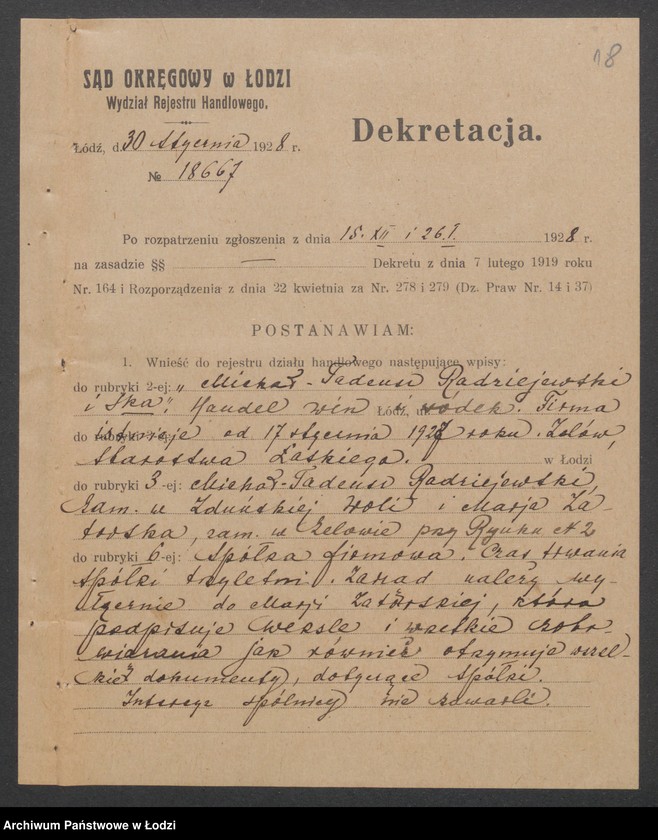 18
SĄD OKRĘGOWY w ŁODZI
Wydział Rejestru Handlowego.
Dekretacja.
Łódź, d. 30 stycznia 1928 r.
№ 18667
Po rozpatrzeniu zgłoszenia z dnia 15. XII i 26. I. 1928 r.
na zasadzie §§ — Dekretu z dnia 7 lutego 1919 roku
Nr. 164 i Rozporządzenia z dnia 22 kwietnia za Nr. 278 i 279 (Dz. Praw Nr. 14 i 37)
POSTANAWIAM:
1. Wnieść do rejestru działu handlowego następujące wpisy:
do rubryki 2-ej: „Michał-Tadeusz Radziejewski
i Ska”. Handel win i wódek. Firma
istnieje od 17 stycznia 1927 roku. Zelów,
Starostwa Łaskiego. w Łodzi
do rubryki 3-ej: Michał-Tadeusz Radziejewski,
zam. w Zduńskiej Woli i Marja Za-
torska, zam. w Zelowie przy Rynku № 2
do rubryki 6-ej: Spółka firmowa. Czas trwania
spółki trzyletni. Zarząd należy wy-
łącznie do Marji Zatorskiej, która
podpisuje weksle i wszelkie zobo-
wiązania jak również otrzymuje wszel-
kie dokumenty, dotyczące spółki.
Intercyz spólnicy nie zawarli.
Archiwum Państwowe w Łodzi